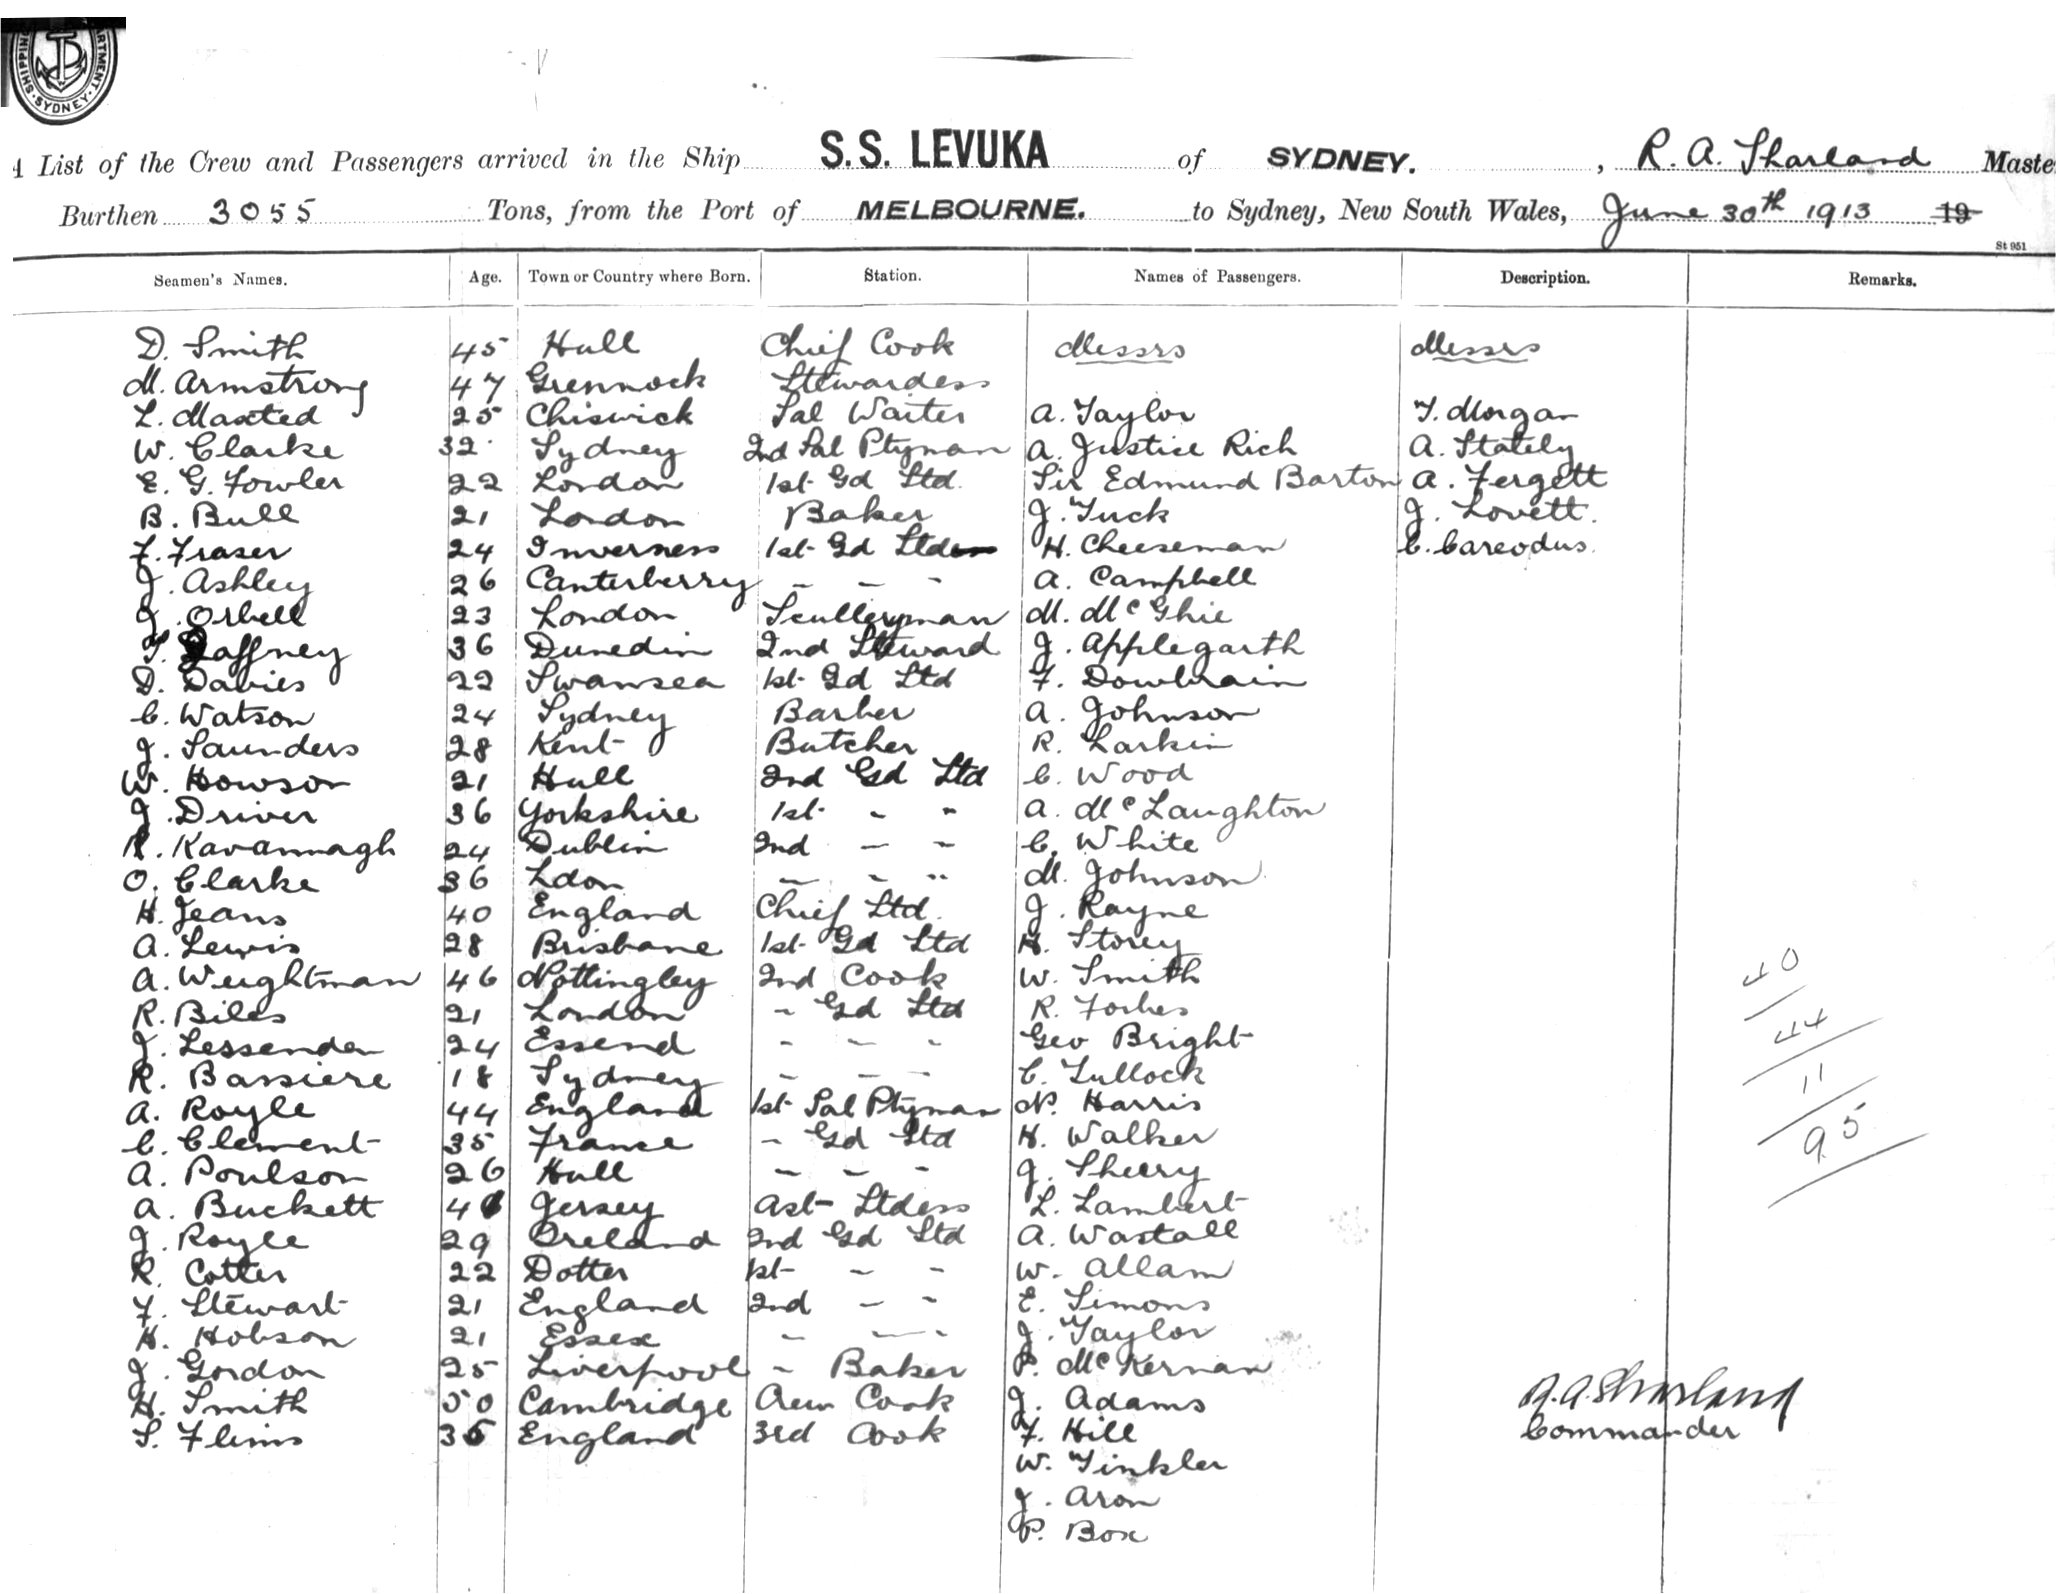 SHIPPING DEPARTMENT SYDNEY
A List of the Crew and Passengers arrived in the Ship S.S. LEVUKA of SYDNEY. , R. A. Sharland Maste
Burthen 3055 Tons, from the Port of MELBOURNE. to Sydney, New South Wales, June 30th 1913 19
St 951
Seamen's Names. Age. Town or Country where Born. Station. Names of Passengers. Description. Remarks.
D. Smith 45 Hull Chief Cook Messrs Messrs
M. Armstrong 47 Grennock Stewardess
L. Maxted 25 Chiswick Sal Waiter A. Taylor T. Morgan
W. Clarke 32 Sydney 2nd Sal Ptyman A. Justice Rich A. Stately
E. G. Fowler 22 London 1st Gd Std. Sir Edmund Barton A. Fergett
B. Bull 21 London Baker J. Tuck J. Lovett.
F. Fraser 24 Inverness 1st Gd Std H. Cheeseman C. Careodus.
J. Ashley 26 Canterberry - - - A. Campbell
J. Orbell 23 London Sculleryman M. McGhie
T. Gaffney 36 Dunedin 2nd Steward J. Applegarth
D. Davies 22 Swansea 1st Gd Std F. Dowbrain
C. Watson 24 Sydney Barber A. Johnson
J. Saunders 28 Kent Butcher R. Larkin
W. Howson 21 Hull 2nd Gd Std C. Wood
J. Driver 36 Yorkshire 1st - - A. McLaughton
R. Kavannagh 24 Dublin 2nd - - C. White
O. Clarke 36 Ldon - - " M. Johnson
H. Jeans 40 England Chief Std. J. Rayne
A. Lewis 28 Brisbane 1st Gd Std H. Storey
A. Weightman 46 Nottingley 2nd Cook W. Smith 40
R. Biles 21 London - Gd Std R. Forbes
J. Lessenden 24 Essend - - - Geo Bright 44
R. Bassiere 18 Sydney - - - C. Tullock
A. Royle 44 England 1st Sal Ptyman N. Harris 11
C. Clement 35 France - Gd Std H. Walker 95
A. Poulson 26 Hull - - - J. Sheery
A. Buckett Jersey Ast Stdess L. Lambert
J. Royle 29 Oreland 2nd Gd Std A. Wastall
R. Cotter 22 Dotter 1st - - W. Allam
F. Stewart 21 England 2nd - - E. Simons
H. Hobson 21 Essex - - - J. Taylor
J. Gordon 25 Liverpool - Baker P. McKernan
H. Smith 50 Cambridge Cook J. Adams R. A. Sharland
S. Flims England 3rd Cook F. Hill Commander
W. Tinkler
J. Aron
P. Box